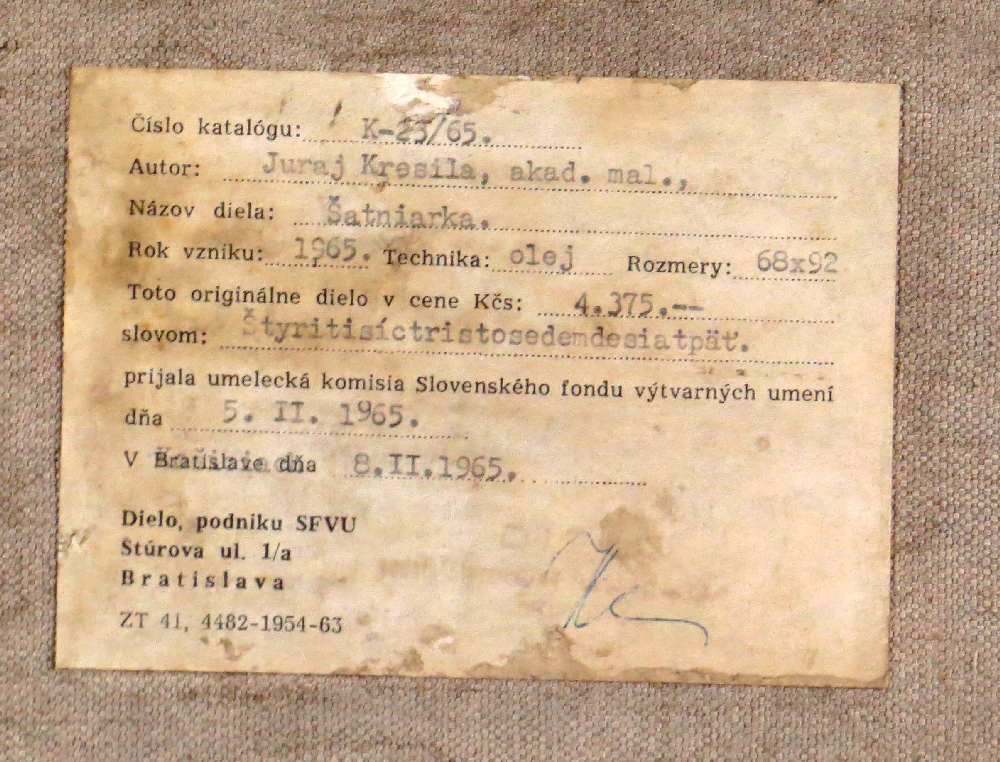 Číslo katalógu: K-23/65.
Autor: Juraj Kresila, akad. mal.,
Názov diela: Šatniarka.
Rok vzniku: 1965. Technika: olej Rozmery: 68x92
Toto originálne dielo v cene Kčs: 4.375.--
slovom: Štyritisíctristosedemdesiatpäť.
prijala umelecká komisia Slovenského fondu výtvarných umení
dňa 5. II. 1965.
V Bratislave dňa 8.II.1965.
Dielo, podniku SFVU
Štúrova ul. 1/a
Bratislava
ZT 41, 4482-1954-63